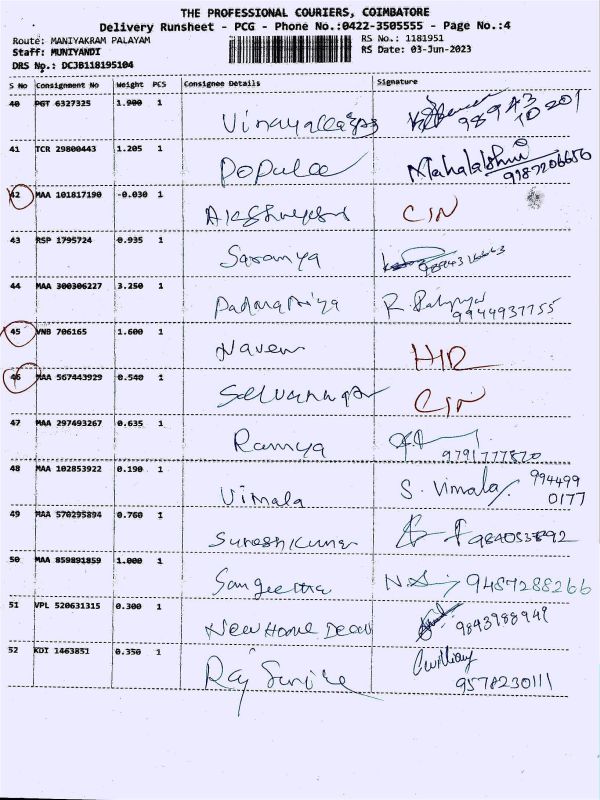 THE PROFESSIONAL COURIERS, COIMBATORE
Delivery Runsheet - PCG - Phone No.:0422-3505555 - Page No.:4
Route: MANIYAKRAM PALAYAM RS No.: 1181951
Staff: MUNIYANDI RS Date: 03-Jun-2023
DRS No.: DCJB118195104
S No Consignment No Weight PCS Consignee Details Signature
40 PGT 6327325 1.900 1 98943 10201
41 TCR 29800443 1.205 1 Popular Mahalakshmi
9987206656
42 MAA 101817190 -0.030 1 CIN
43 RSP 1795724 0.935 1 Saranya
44 MAA 300306227 3.250 1 Padmapriya R.
9944937755
45 VNB 706165 1.600 1 Naveen HIR
46 MAA 567443929 0.540 1 Selvanayar CIN
47 MAA 297493267 0.635 1 Ramya
9791777820
48 MAA 102853922 0.190 1 Vimala S. Vimala 994499
0177
49 MAA 570295894 0.760 1 Suresh Kumar
50 MAA 859891859 1.000 1 Sangeetha 9487288266
51 VPL 520631315 0.300 1 New Home Decor 9843988949
52 KDI 1463851 0.350 1 Raj
9578230111